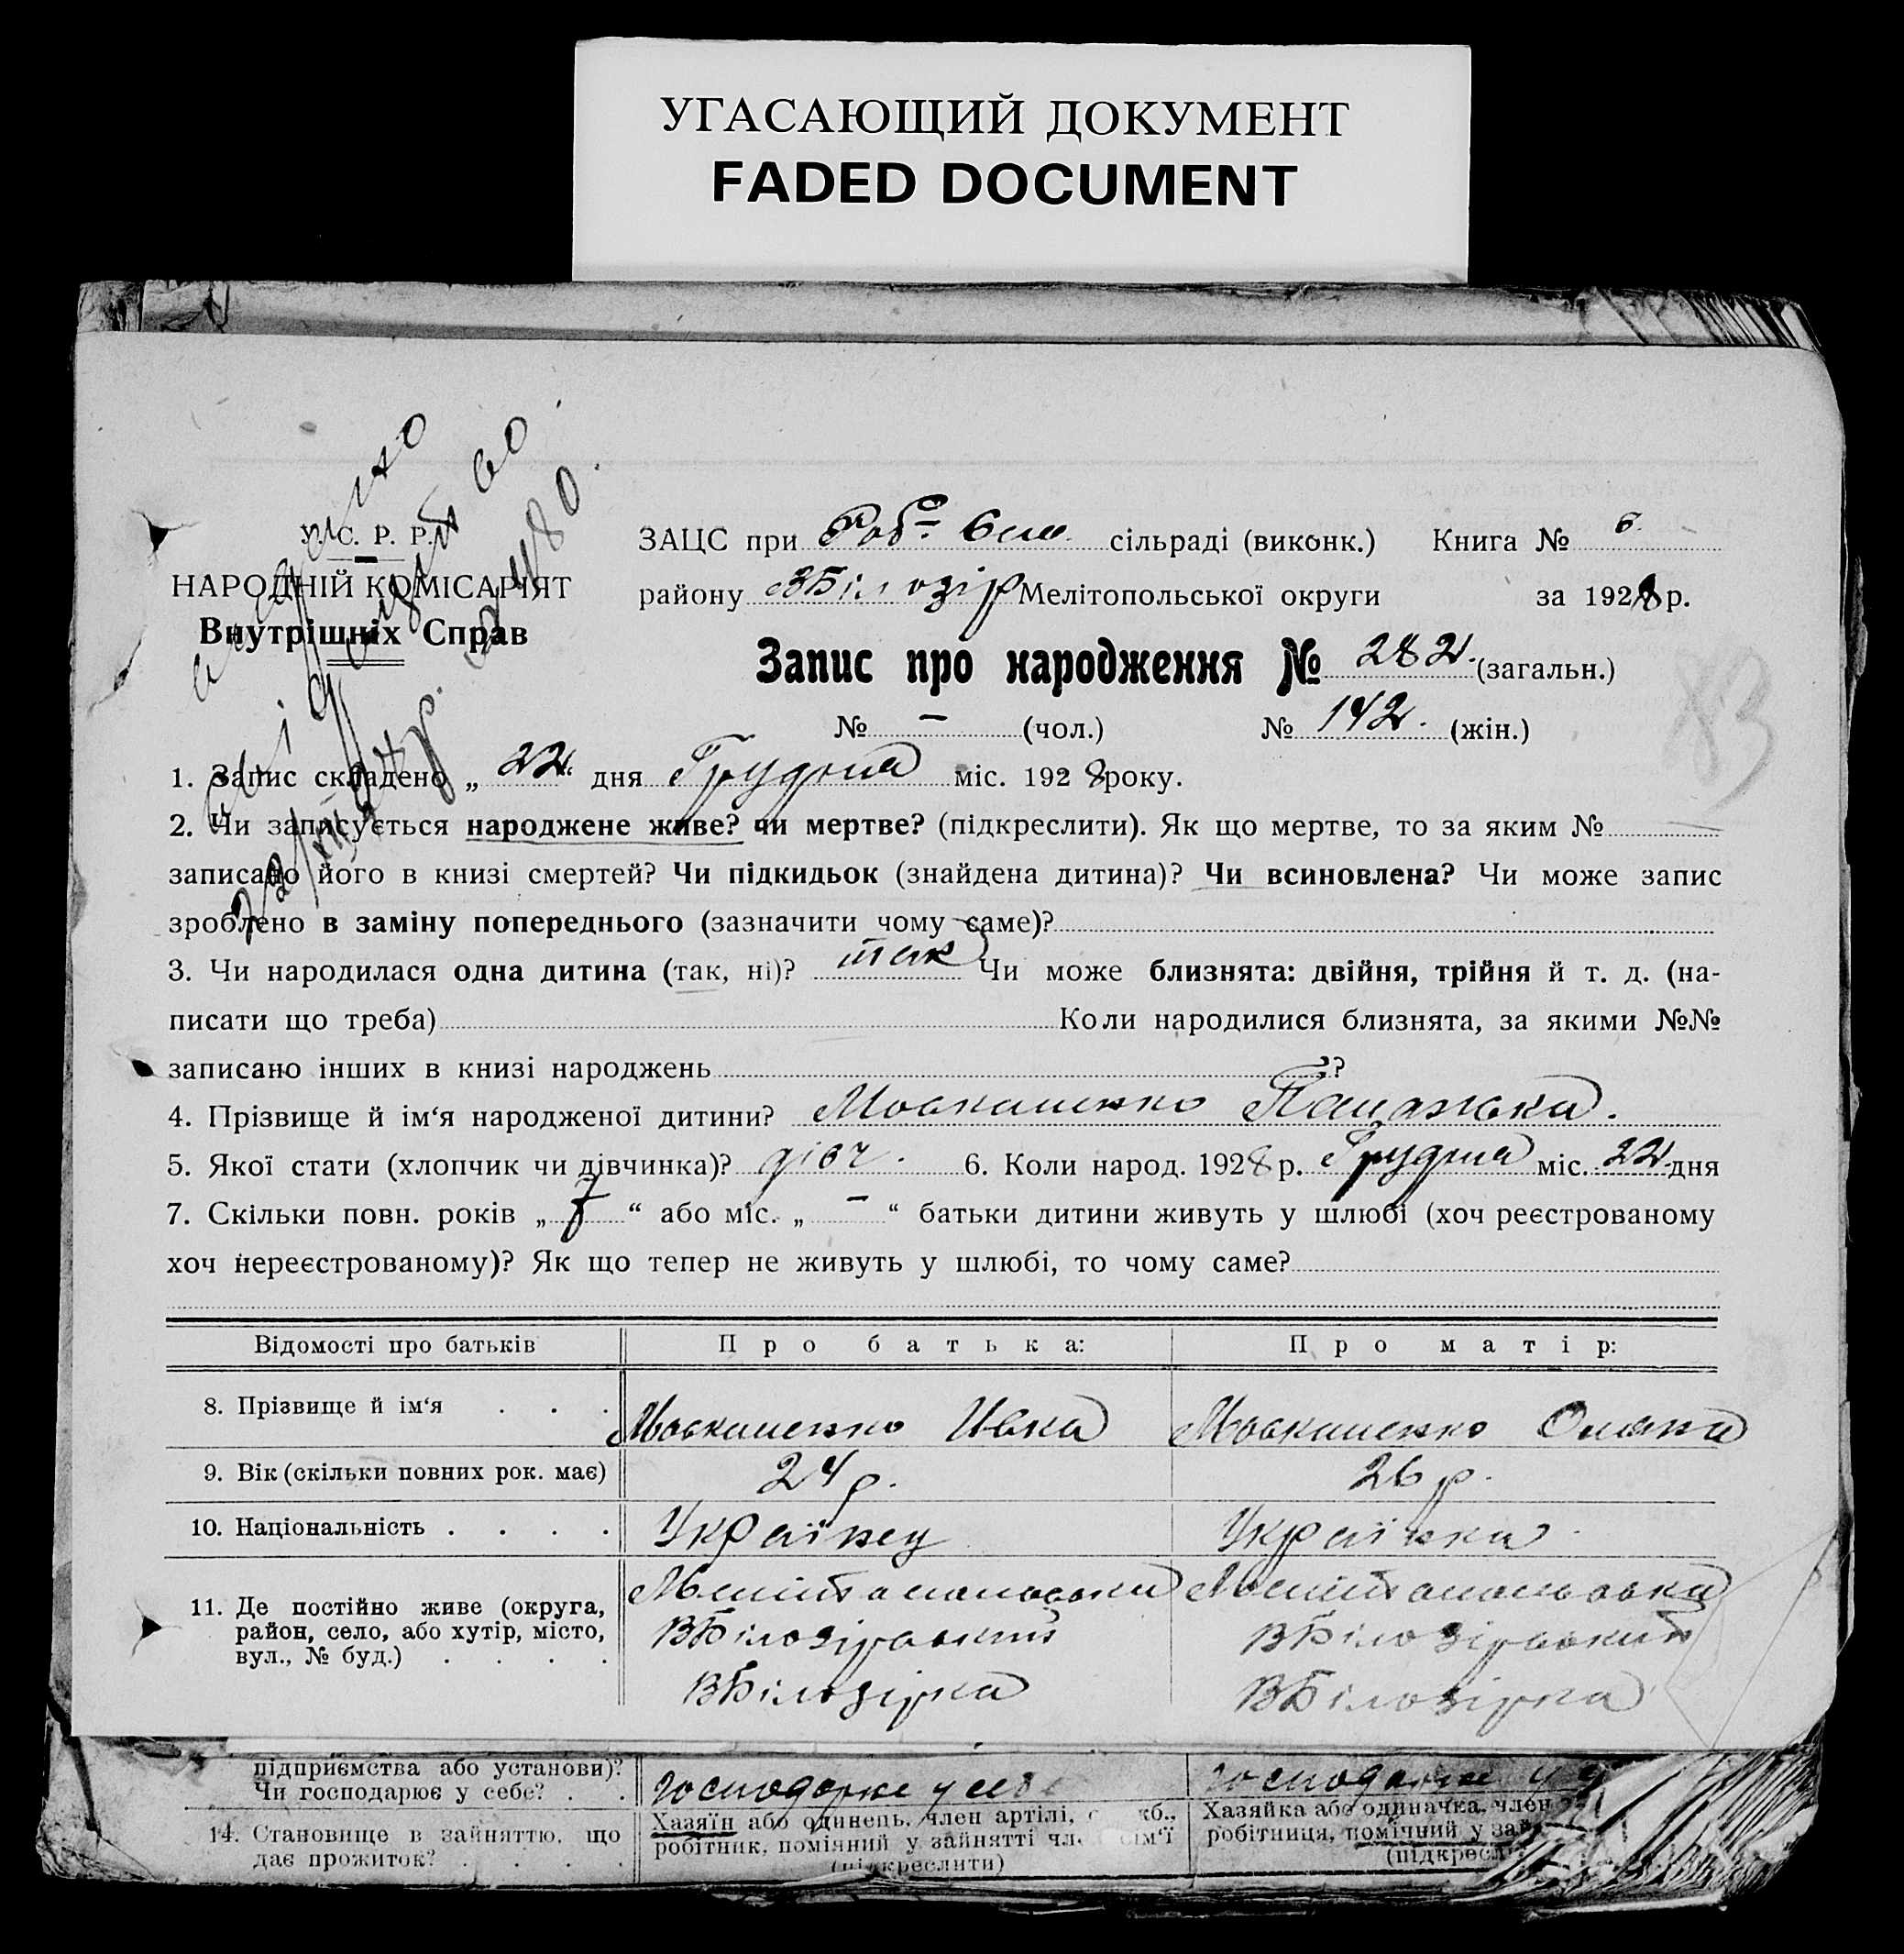 УГАСАЮЩИЙ ДОКУМЕНТ
FADED DOCUMENT
У. С. Р. Р.
НАРОДНІЙ КОМІСАРІЯТ
Внутрішніх Справ
ЗАЦС при сільраді (виконк.) Книга № 6.
району ВБілозір Мелітопольської округи за 1928 р.
Запис про народження № 282. (загальн.)
№ – (чол.) № 142. (жін.)
83
1. Запис складено „ 22. дня Грудня міс. 1928 року.
2. Чи записується народжене живе? чи мертве? (підкреслити). Як що мертве, то за яким №
записано його в книзі смертей? Чи підкидьок (знайдена дитина)? Чи всиновлена? Чи може запис
зроблено в заміну попереднього (зазначити чому саме)?
3. Чи народилася одна дитина (так, ні)? так Чи може близнята: двійня, трійня й т. д. (на-
писати що треба) Коли народилися близнята, за якими №№
записано інших в книзі народжень ?
4. Прізвище й ім‘я народженої дитини? Москаленко
5. Якої стати (хлопчик чи дівчинка)? дівч. 6. Коли народ. 1928 р. Грудня міс. 22. дня
7. Скільки повн. років „ 7 “ або міс. „ – “ батьки дитини живуть у шлюбі (хоч реєстрованому
хоч нереєстрованому)? Як що тепер не живуть у шлюбі, то чому саме?
Відомості про батьків Про батька: Про матір:
8. Прізвище й ім‘я . . . Москаленко Ивка Москаленко Оляна
9. Вік (скільки повних рок. має) 24 р. 26 р.
10. Національність . . . . Українец Українка
11. Де постійно живе (округа, район, село, або хутір, місто, вул., № буд.) . . . .
Мелітопольська Мелітопольська
ВБілозірський ВБілозірський
ВБілозірка ВБілозірка
підприємства або установи)?
Чи господарює у себе? . . господарює у себе господарює у
14. Становище в зайняттю, що дає прожиток? . . . .
Хазяїн або одинець, член артілі, кб., робітник, помічний у зайнятті сім‘ї (підкреслити)
Хазяйка або одиначка, член
робітниця, помічний у